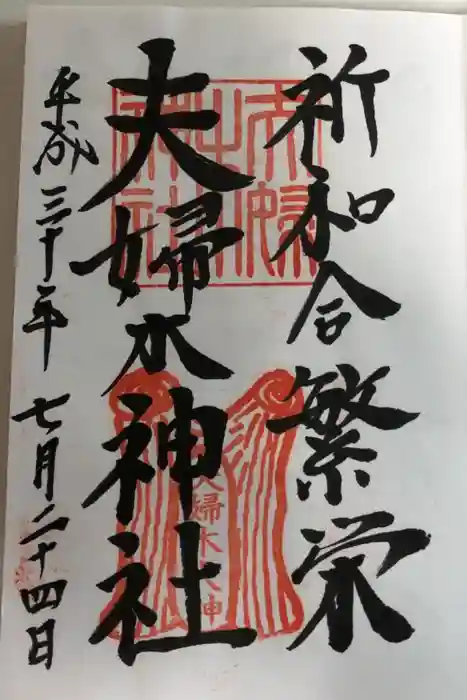 祈和合繁栄
夫婦木神社
平成三十年七月二十四日
夫婦木大神